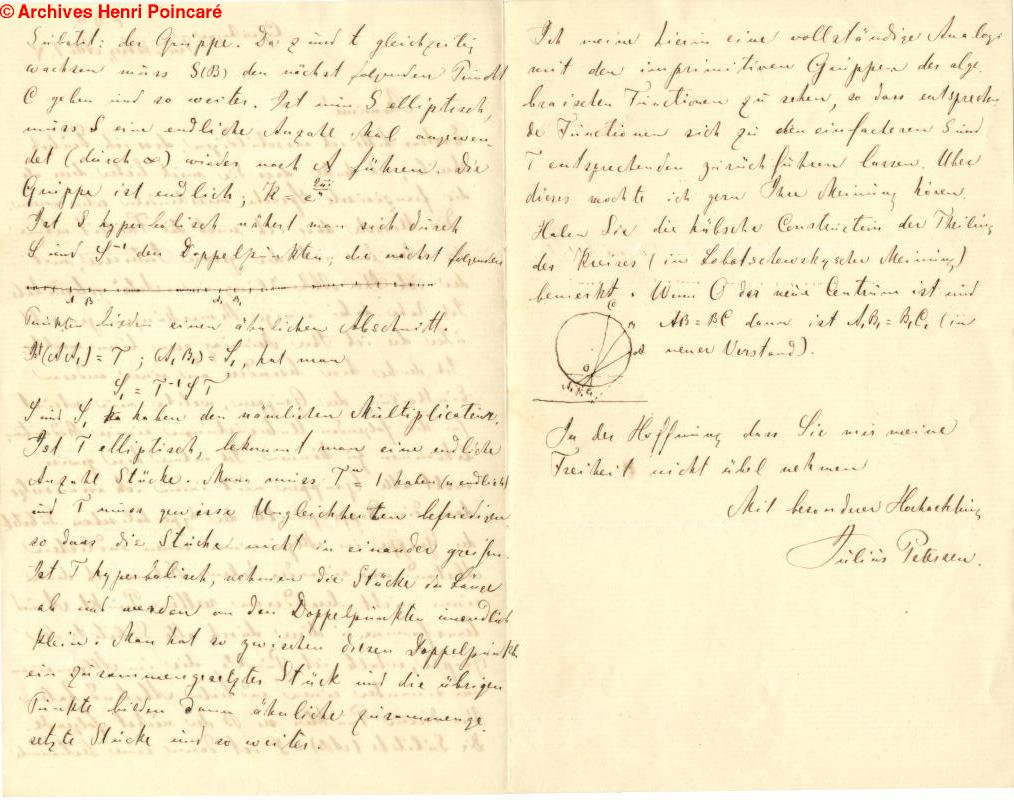 © Archives Henri Poincaré
Substit: der Gruppe. Da z und t gleichzeitig
wachsen muss S(B) den nächst folgenden Punct
C geben und so weiter. Ist nun S elliptisch,
muss S eine endliche Anzahl Mal angewen-
det (durch ∞) wieder nach A führen. Die
Gruppe ist endlich; K = e^{2πi/n}
Ist S hyperbolisch nähert man sich durch
S und S⁻¹ den Doppelpunkten; die nächst folgenden
A B A₁ B₁
Punkten bieden einen ähnlichen Abschnitt.
Ist (A A₁) = T ; (A₁ B₁) = S₁, hat man
S₁ = T⁻¹ S T
S und S₁ haben den nämlichen Multiplicateur.
Ist T elliptisch, bekommt man eine endliche
Anzahl Stücke. Mann muss Tⁿ = 1 haben (n endlich)
und T muss gewisse Ungleichheiten befriedigen
so dass die Stücke nicht in einander greifen.
Ist T hyperbolisch, nehmen die Stücke in Länge
ab und werden an den Doppelpunkten unendlich
klein. Man hat so zwischen diesen Doppelpunkte
ein zusammengesetztes Stück und die übrigen
Punkte bilden dann ähnliche zusammenge-
setzte Stücke und so weiter.
Ich meine hierin eine vollständige Analogi
mit den imprimitiven Gruppen der alge-
braischen Functionen zu sehen, so dass entsprechen-
de Functionen sich zu den einfacteren S und
T entsprechenden zurückführen lassen. Uber
dieses möchte ich gern Ihre Meinung hören.
Haben Sie die hübsche Construction der Theilung
des Kreises (in Lobatschewskyscher Meinung)
bemerkt. Wenn O das neue Centrum ist und
AB = BC dann ist A₁B₁ = B₁C₁ (in
neuer Verstand).
C B A O A₁ B₁ C₁
In der Hoffnung dass Sie mir meine
Freiheit nicht übel nehmen
Mit besonderer Hochachtung
Julius Petersen.